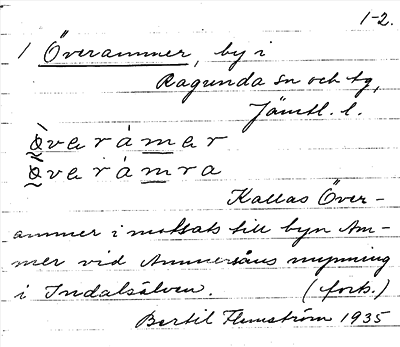 1-2.
1 Överammer, by i
Ragunda sn och tg,
Jämtl. l.
Òverámer
Òverámra
Kallas Över-
ammer i motsats till byn Am-
mer vid Ammeråns mynning
i Indalsälven. (forts.)
Bertil Flemström 1935